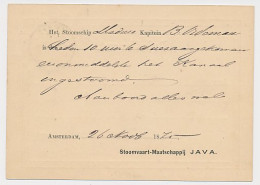 Het Stoomschip Madura Kapitein B. Potsma
is heden 10 uur te Suez aangekomen
en onmiddelijk het Kanaal
ingestoomd.
Aan boord alles wel
AMSTERDAM, 26 187
Stoomvaart-Maatschappij JAVA.